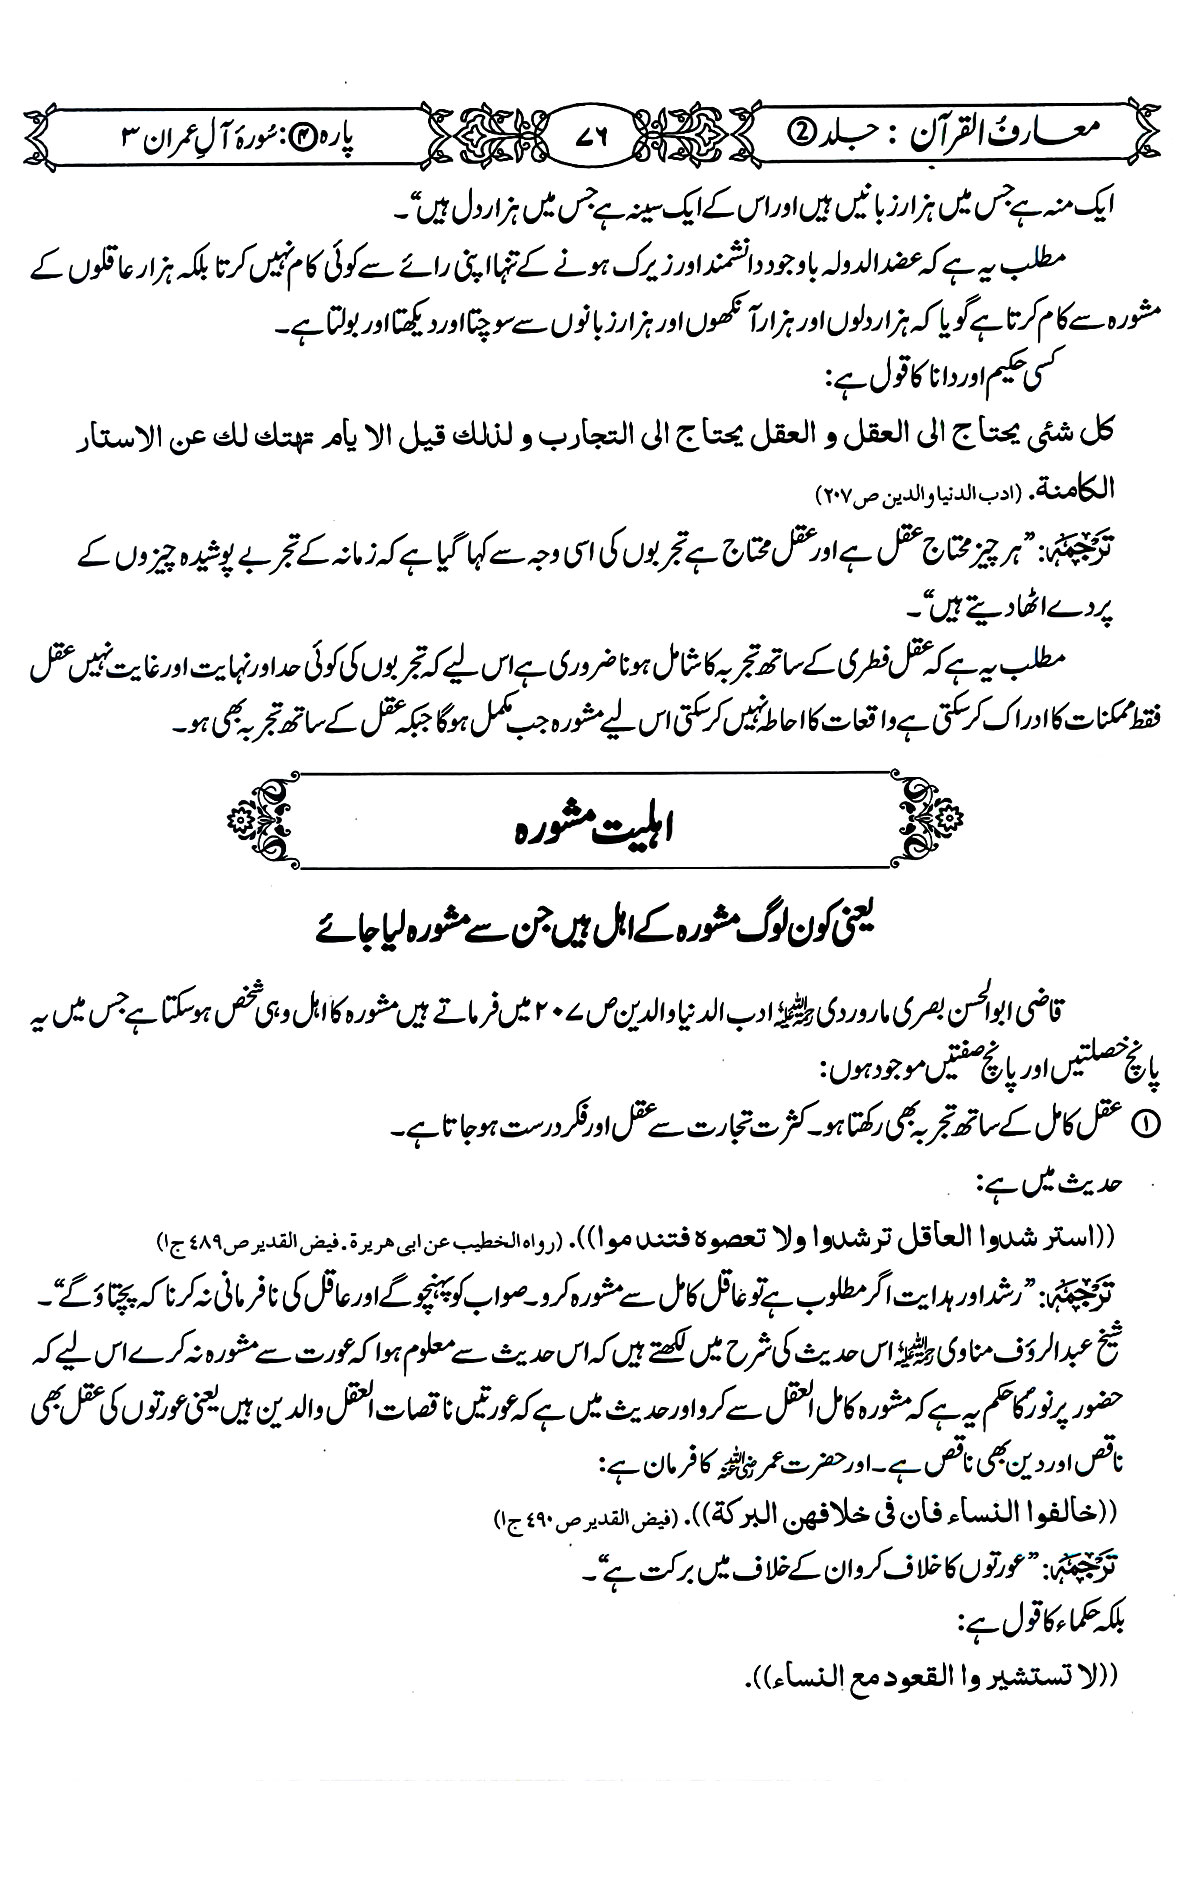 معارف القرآن : جلد ②
٧٦
پارہ ④ : سُورۂ آلِ عمران ۳
ایک منہ ہے جس میں ہزار زبانیں ہیں اور اس کے ایک سینہ ہے جس میں ہزار دل ہیں“۔
مطلب یہ ہے کہ عضد الدولہ باوجود دانشمند اور زیرک ہونے کے تنہا اپنی رائے سے کوئی کام نہیں کرتا بلکہ ہزار عاقلوں کے
مشورہ سے کام کرتا ہے گویا کہ ہزار دلوں اور ہزار آنکھوں اور ہزار زبانوں سے سوچتا اور دیکھتا اور بولتا ہے۔
کسی حکیم اور دانا کا قول ہے:
کل شئی یحتاج الی العقل و العقل یحتاج الی التجارب و لذلك قیل الا یام تهتك لك عن الاستار
الکامنة. (ادب الدنیا والدین ص ۲۰۷)
تَرْجَمَہ: ”ہر چیز محتاج عقل ہے اور عقل محتاج ہے تجربوں کی اسی وجہ سے کہا گیا ہے کہ زمانہ کے تجربے پوشیدہ چیزوں کے
پردے اٹھا دیتے ہیں“۔
مطلب یہ ہے کہ عقل فطری کے ساتھ تجربہ کا شامل ہونا ضروری ہے اس لیے کہ تجربوں کی کوئی حد اور نہایت اور غایت نہیں عقل
فقط ممکنات کا ادراک کر سکتی ہے واقعات کا احاطہ نہیں کر سکتی اس لیے مشورہ جب مکمل ہوگا جبکہ عقل کے ساتھ تجربہ بھی ہو۔
اہلیت مشورہ
یعنی کون لوگ مشورہ کے اہل ہیں جن سے مشورہ لیا جائے
قاضی ابوالحسن بصری ماروردی رحمۃ اللہ علیہ ادب الدنیا والدین ص ۲۰۷ میں فرماتے ہیں مشورہ کا اہل وہی شخص ہو سکتا ہے جس میں یہ
پانچ خصلتیں اور پانچ صفتیں موجود ہوں:
① عقل کامل کے ساتھ تجربہ بھی رکھتا ہو۔ کثرت تجارت سے عقل اور فکر درست ہو جاتا ہے۔
حدیث میں ہے:
((استر شدوا العاقل ترشدوا ولا تعصوہ فتند موا)). (رواہ الخطیب عن ابی هریرة. فیض القدیر ص ٤٨٩ ج١)
تَرْجَمَہ: ”رشد اور ہدایت اگر مطلوب ہے تو عاقل کامل سے مشورہ کرو۔ صواب کو پہنچو گے اور عاقل کی نافرمانی نہ کرنا کہ پچتاؤ گے“۔
شیخ عبدالرؤف مناوی رحمۃ اللہ علیہ اس حدیث کی شرح میں لکھتے ہیں کہ اس حدیث سے معلوم ہوا کہ عورت سے مشورہ نہ کرے اس لیے کہ
حضور پر نور کا حکم یہ ہے کہ مشورہ کامل العقل سے کرو اور حدیث میں ہے کہ عورتیں ناقصات العقل والدین ہیں یعنی عورتوں کی عقل بھی
ناقص اور دین بھی ناقص ہے۔ اور حضرت عمر رضی اللہ عنہ کا فرمان ہے:
((خالفوا النساء فان فی خلافهن البرکة)). (فیض القدیر ص ٤٩٠ ج١)
تَرْجَمَہ: ”عورتوں کا خلاف کرو ان کے خلاف میں برکت ہے“۔
بلکہ حکماء کا قول ہے:
((لا تستشیر وا القعود مع النساء)).